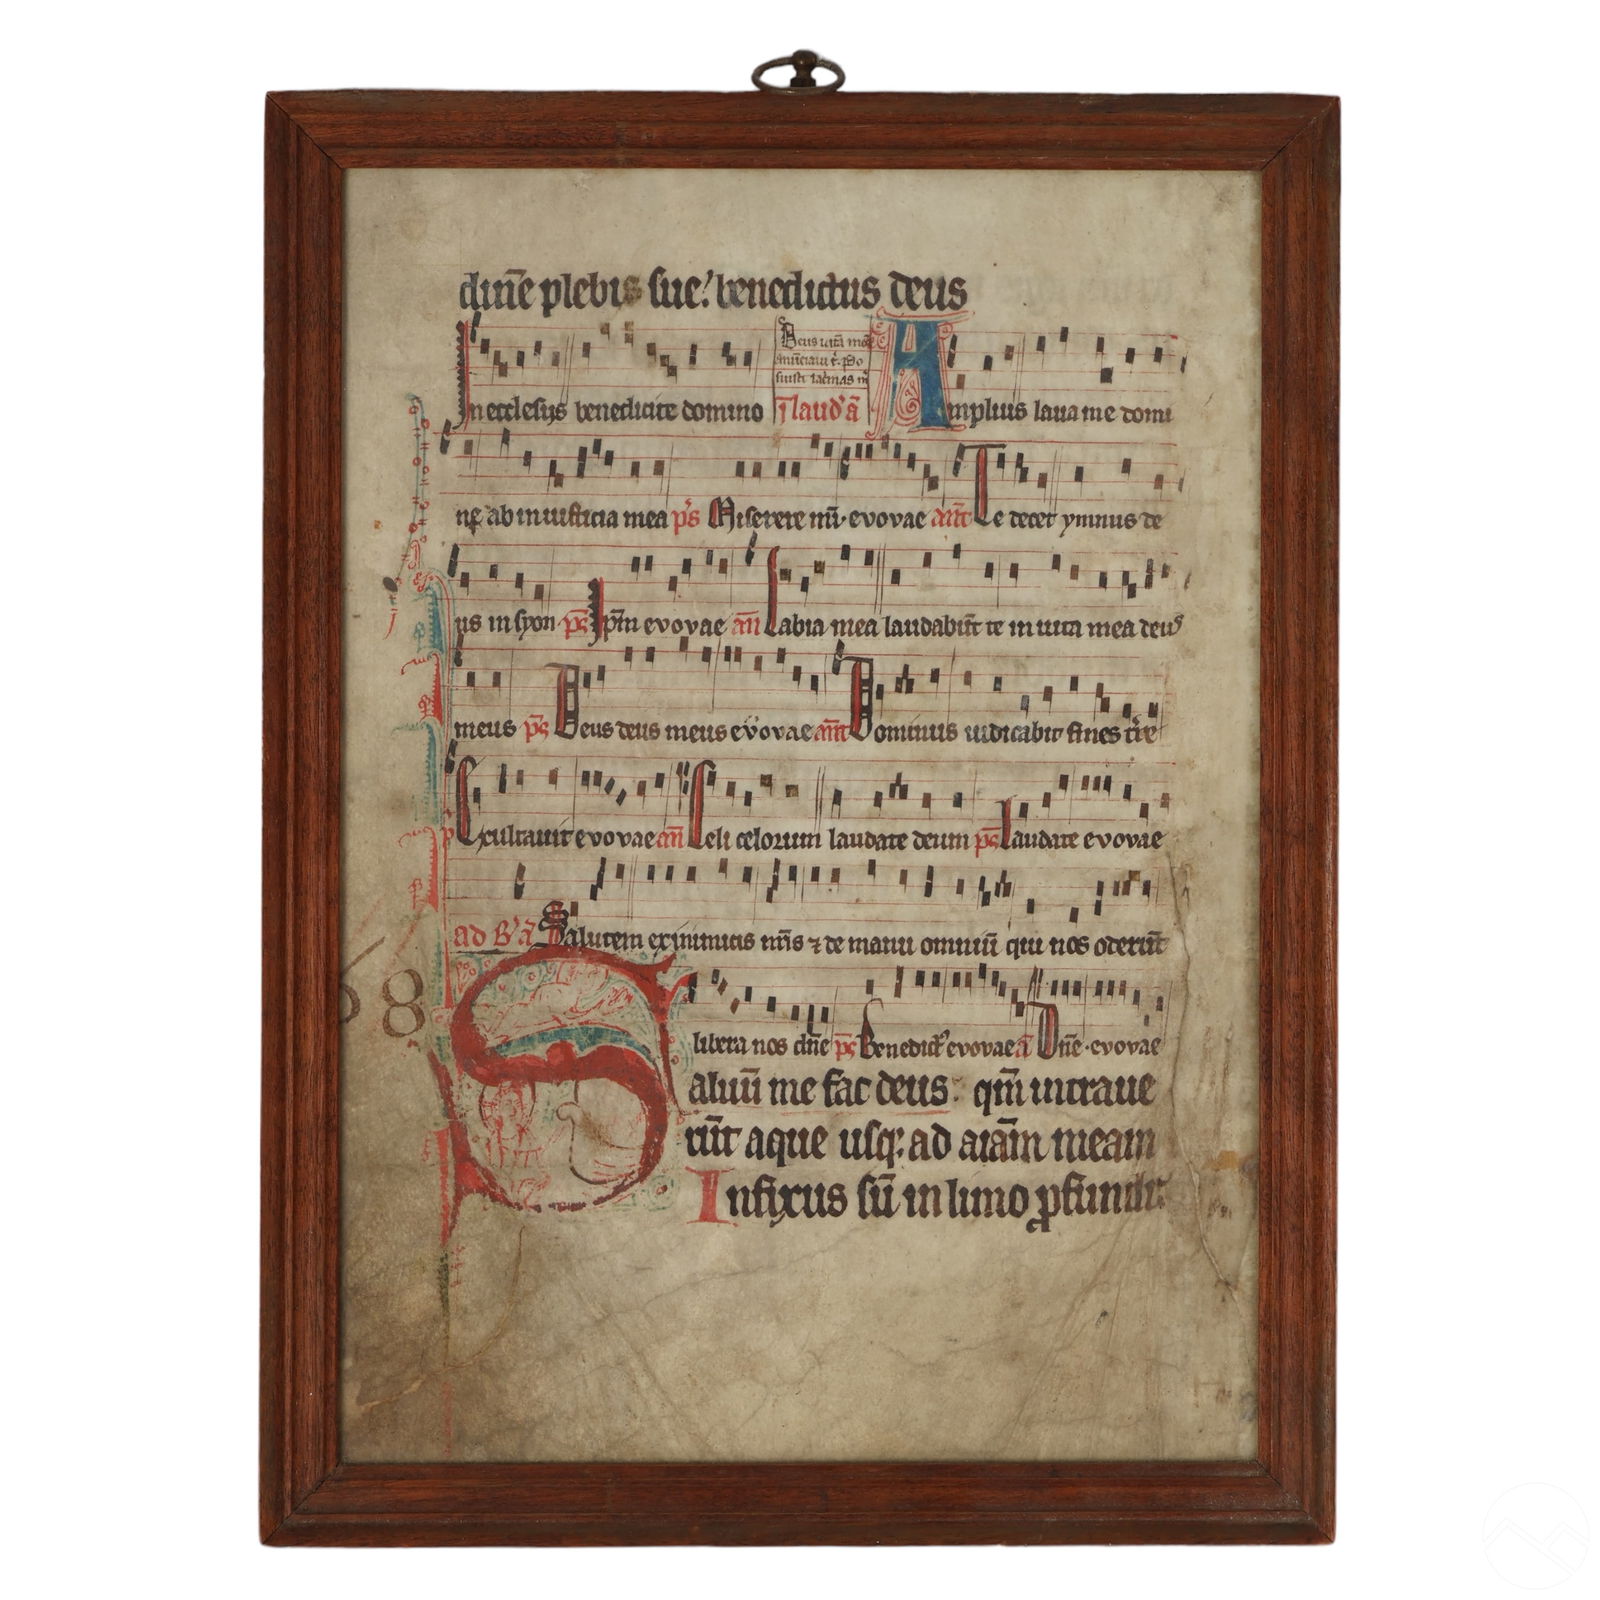 dīne plebis sue: benedictus deus
Deus vitā meā
anūciaui t. Po
suisti lacrimas m
In ecclesijs benedicite domino I laud' ā Amplius laua me domi
ne ab iniusticia mea ps Miserere mei evovae ant Te decet ymnus de
us in syon ps Ipm evovae an Labia mea laudabūt te in uita mea deus
meus ps Deus deus meus evovae ant Dominus iudicabit fines tre
ps Exultauit evovae an Celi celorum laudate deum ps Laudate evovae
ad B' ā Salutem ex inimicis nris ⁊ de manu omniū qui nos oderūt
libera nos dne ps Benedict' evovae ā Dne evovae
68
Saluū me fac deus: qm̄ intraue
rūt aque usq; ad aiām meam
Infixus sū in limo pfundi: